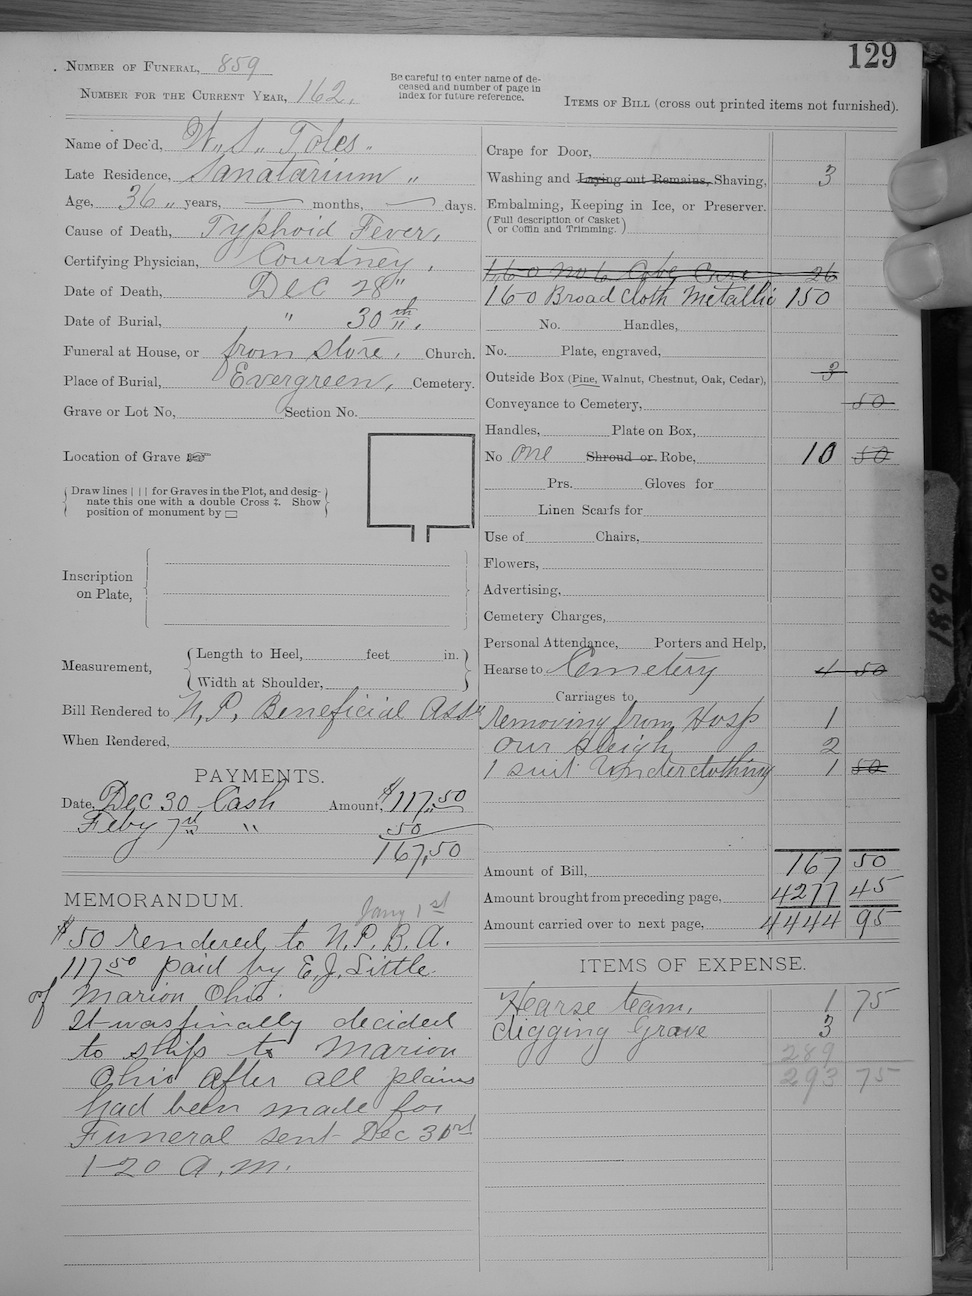 129
Number of Funeral, 859
Number for the Current Year, 162.
Be careful to enter name of de-
ceased and number of page in
index for future reference.
Items of Bill (cross out printed items not furnished).
Name of Dec'd, W. S. Toles
Late Residence, Sanatarium "
Age, 36 " years, — months, — days.
Cause of Death, Typhoid Fever,
Certifying Physician, Courtney,
Date of Death, Dec 28"
Date of Burial, " 30th
Funeral at House, or from store, Church.
Place of Burial, Evergreen, Cemetery.
Grave or Lot No, Section No.
Location of Grave ☞
Draw lines | | | for Graves in the Plot, and desig-
nate this one with a double Cross ‡. Show
position of monument by ▭
Inscription
on Plate,
Measurement,
Length to Heel, feet in.
Width at Shoulder,
Bill Rendered to N.P. Beneficial Assn
When Rendered,
PAYMENTS.
Date, Dec 30 Cash Amount, $117.50
Feby 7th " 50
167.50
MEMORANDUM.
Jany 1st
$50 rendered to N.P.B.A.
117 50 paid by E.J. Little
of Marion Ohio.
It was finally decided
to ship to Marion
Ohio after all plans
had been made for
Funeral sent Dec 31st
1-20 A.M.
Crape for Door,
Washing and Laying out Remains, Shaving, 3
Embalming, Keeping in Ice, or Preserver.
(Full description of Casket
or Coffin and Trimming.)
160 No 6 Case 26
160 Broad Cloth Metallic 150
No. Handles,
No. Plate, engraved,
Outside Box (Pine, Walnut, Chestnut, Oak, Cedar), 3
Conveyance to Cemetery, 50
Handles, Plate on Box,
No one Shroud or Robe, 10 50
Prs. Gloves for
Linen Scarfs for
Use of Chairs,
Flowers,
Advertising,
Cemetery Charges,
Personal Attendance, Porters and Help,
Hearse to Cemetery 4 50
Carriages to
removing from Hosp 1
our sleigh 2
1 suit Underclothing 1 50
Amount of Bill, 167 50
Amount brought from preceding page, 4277 45
Amount carried over to next page, 4444 95
ITEMS OF EXPENSE.
Hearse team, 1 75
digging Grave 3
289
293 75
1890